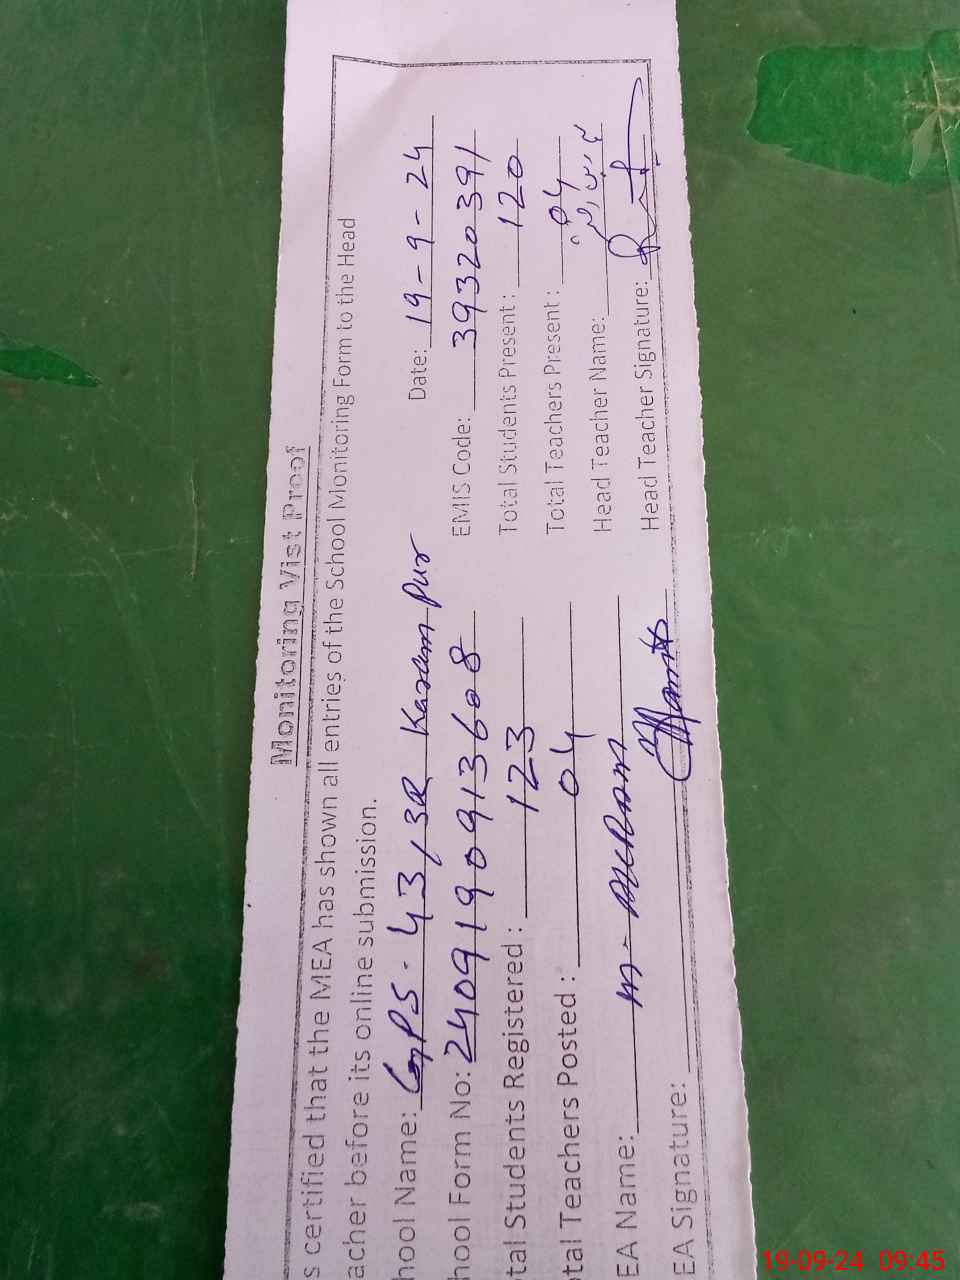 Monitoring Vist Proof
s certified that the MEA has shown all entries of the School Monitoring Form to the Head
acher before its online submission.
hool Name: GPS. 43/3R Karam Pur Date: 19-9-24
hool Form No: 2409190913608 EMIS Code: 39320391
tal Students Registered: 123 Total Students Present: 120
tal Teachers Posted: 04 Total Teachers Present: 04
EA Name: m- Head Teacher Name:
EA Signature: Head Teacher Signature:
19-09-24 09:45